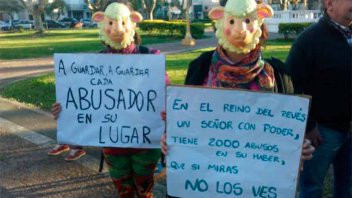 A GUARDAR, A GUARDAR
CADA
ABUSADOR
EN SU
LUGAR
EN EL REINO DEL REVÉS
UN SEÑOR CON PODER,
TIENE 2000 ABUSOS
EN SU HABER,
QUE SI MIRAS
NO LOS VES